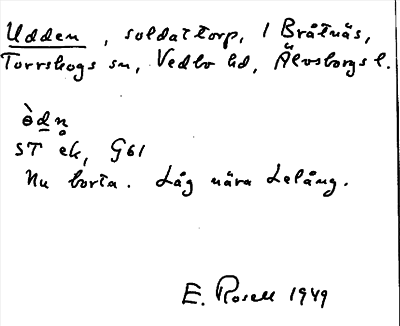 Udden, soldattorp, / Bråtnäs,
Torrskogs sn, Vedbo hd, Älvsborgs l.
ɵ̀dn̥
ST ek, G61
Nu borta. Låg nära Lelång.
E. Rosell 1949